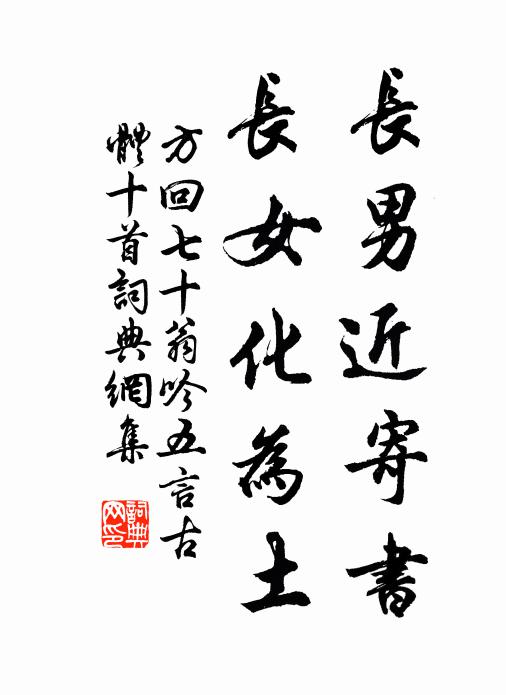 長男近寄書
長女化為土
方回七十翁吟五言古
體十首詞典網集
詞典
网印